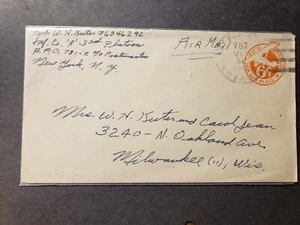 Pvt. W. H. Kuter 36846292
Inf. Co. "A" 3rd Platoon
A.P.O. 781-R % Postmaster
New York, N. Y.
AIR MAIL
Mrs. W. H. Kuter and Carol Jean
3240-N. Oakland Ave.
Milwaukee (11), Wis.